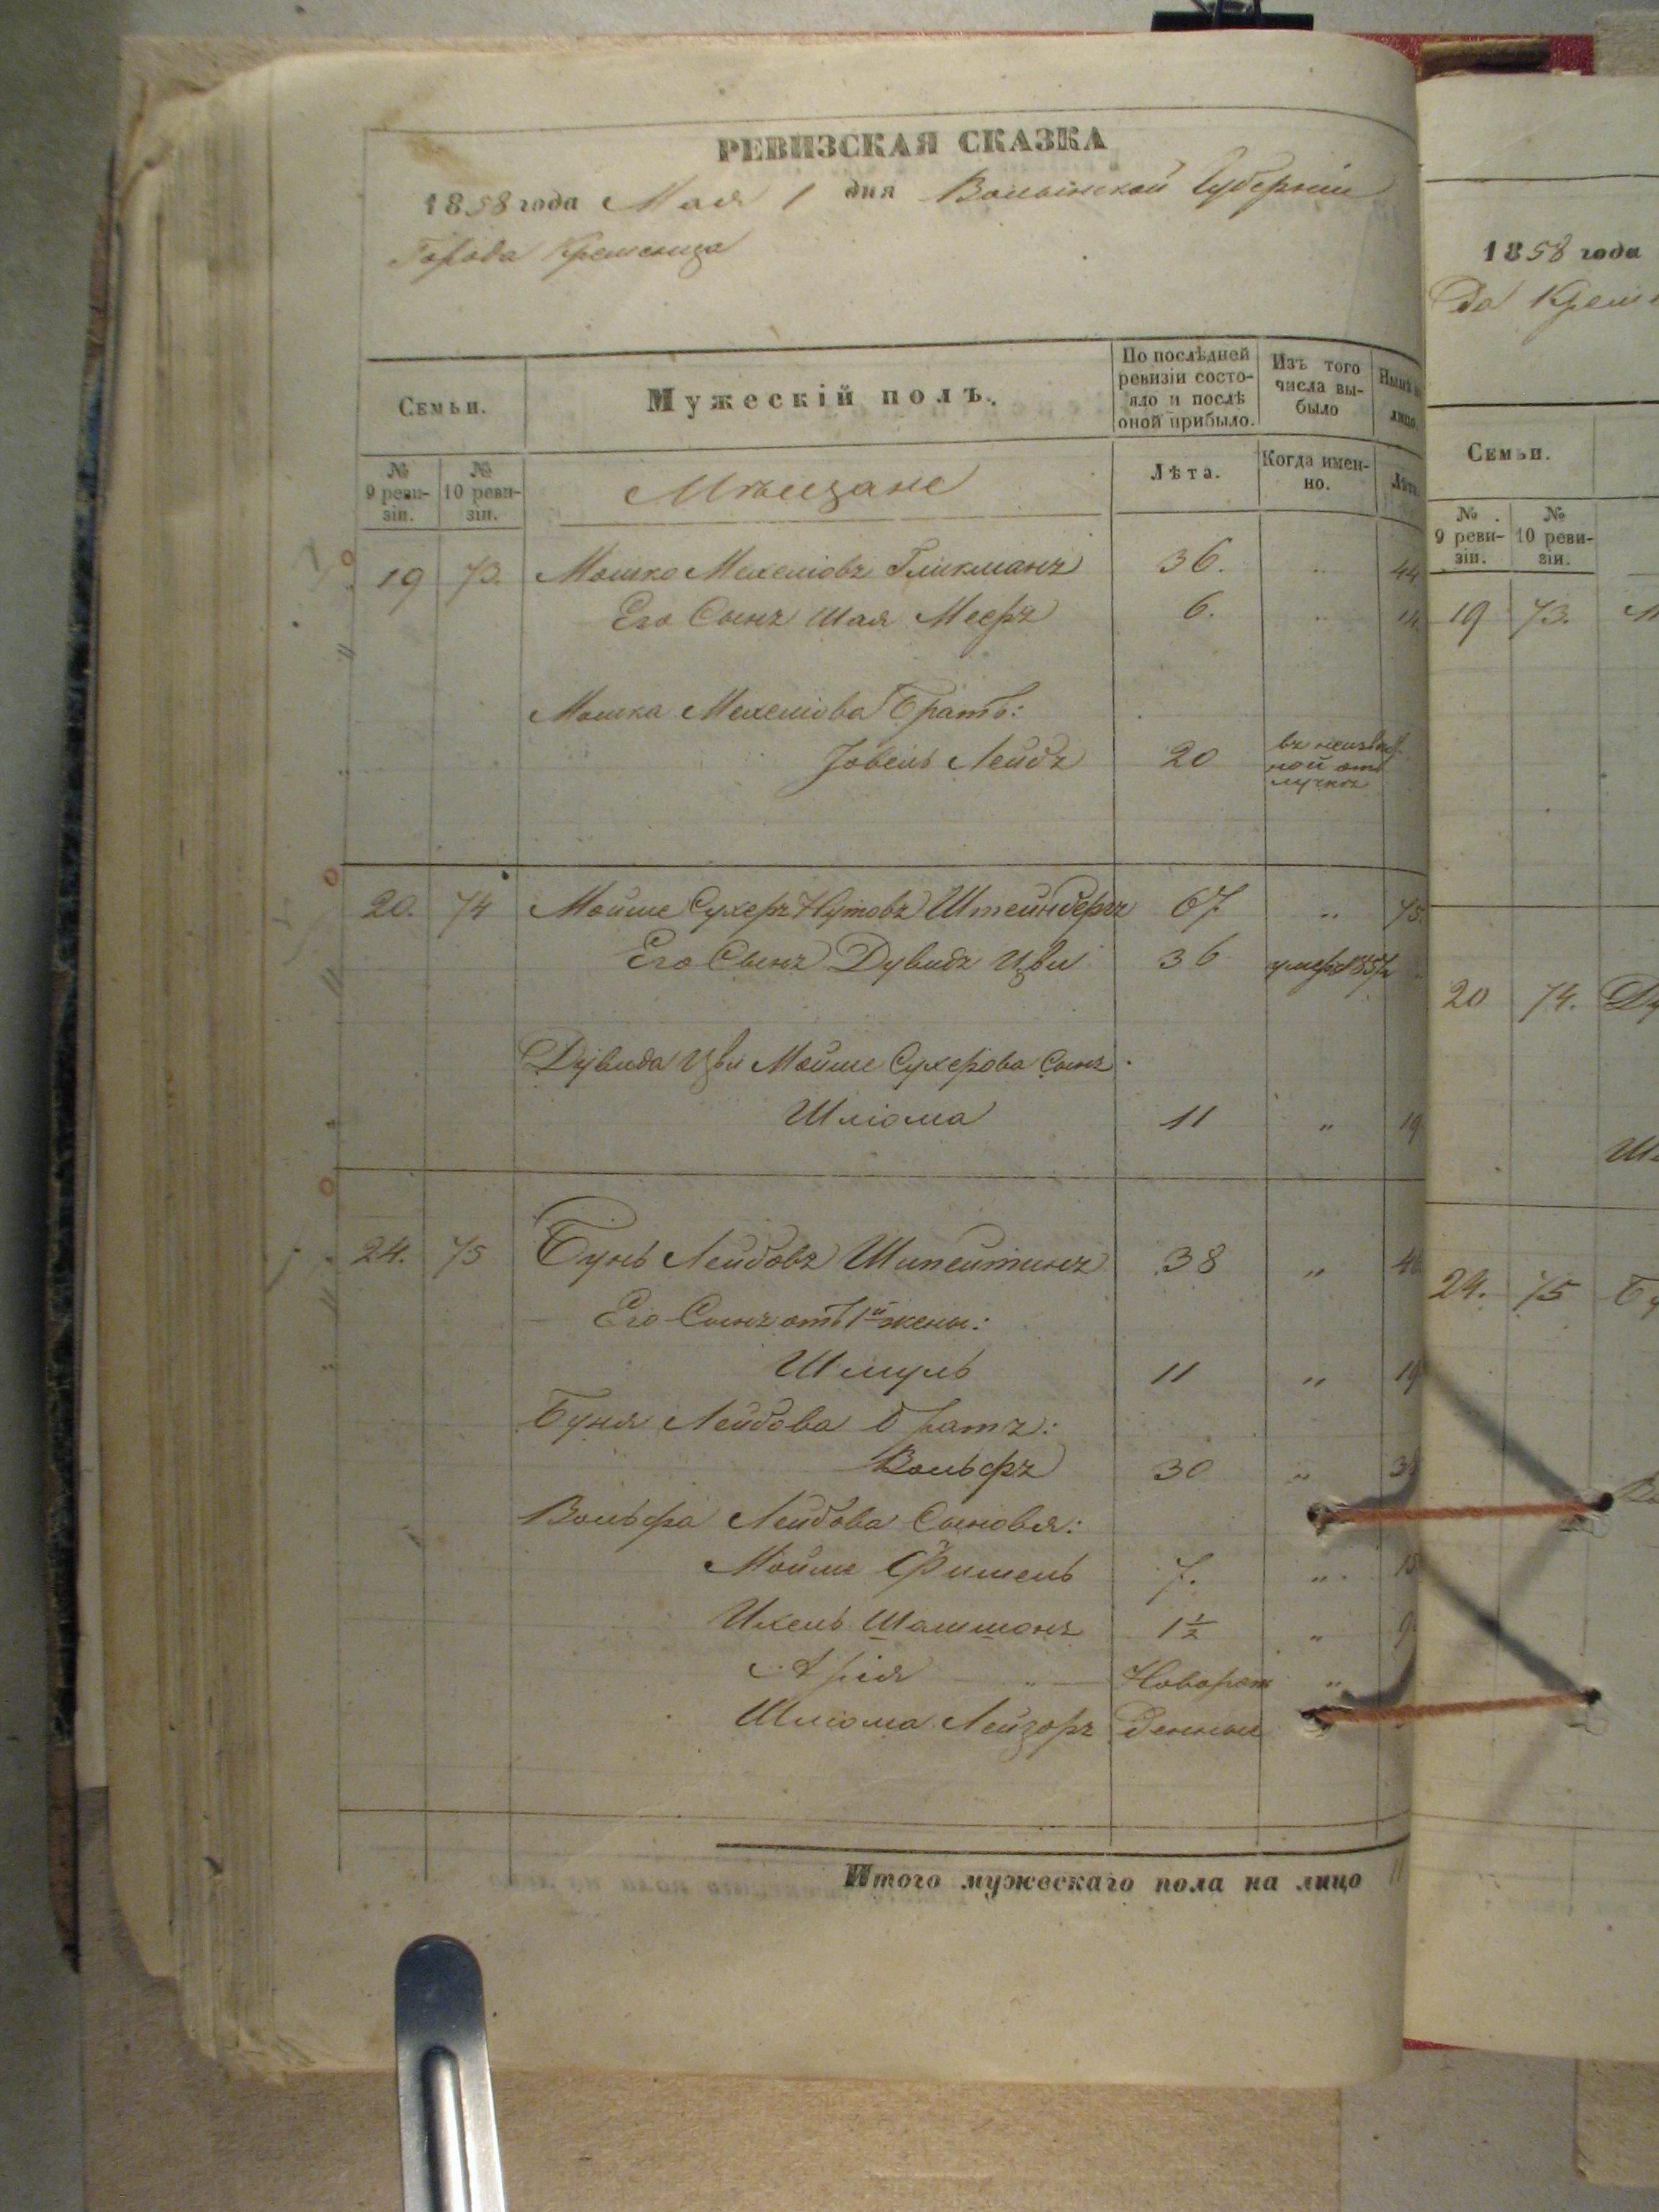 РЕВИЗСКАЯ СКАЗКА
1858 года Мая 1 дня Волынской Губерніи
Города Кременца
Семьи.
Мужескій полъ.
По послѣдней ревизіи состояло и послѣ оной прибыло.
Изъ того числа выбыло
лицо.
№ 9 ревизіи.
№ 10 ревизіи.
Мѣщане
Лѣта.
Когда именно.
Лѣта.
19 73. Мошко Мехелювъ Гликманъ 36. „ 44
Его Сынъ Шая Мееръ 6. „ 14
Мошка Мехелюва Братъ:
Іовель Лейбъ 20 въ неизвѣстной отлучкѣ
20. 74 Мойше Сухеръ Нутовъ Штейнберъ 67 „ 75.
Его Сынъ Дувидъ Цви 36 умеръ
Дувида Цви Мойше Сухерова Сынъ.
Шліома 11 „ 19
24. 75 Бунь Лейбовъ 38 „ 46
Его Сынъ отъ 1й жены:
Шмуль 11 „ 19
Буня Лейбова братъ:
Вольфъ 30 „ 38
Вольфа Лейбова Сыновья:
Мойше Фишель 7. „ 15
Ихель Шамшонъ 1½ „ 9
Арія „ Новорож „
Шліома Лейзоръ денные
Итого мужескаго пола на лицо 11
1858 года
да Креме
Семьи.
№ 9 ревизіи.
№ 10 ревизіи.
19 73. М
20 74. Ду
Шл
24. 75 Бу
Во